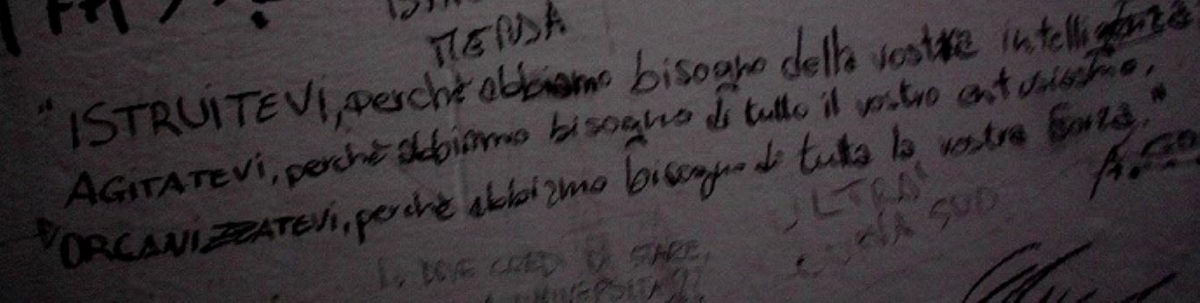 MERDA
"ISTRUITEVI, perchè abbiamo bisogno della vostra intelligenza
AGITATEVI, perchè abbiamo bisogno di tutto il vostro entusiasmo,
ORGANIZZATEVI, perchè abbiamo bisogno di tutta la vostra forza."
A.
LTRA'
SUD